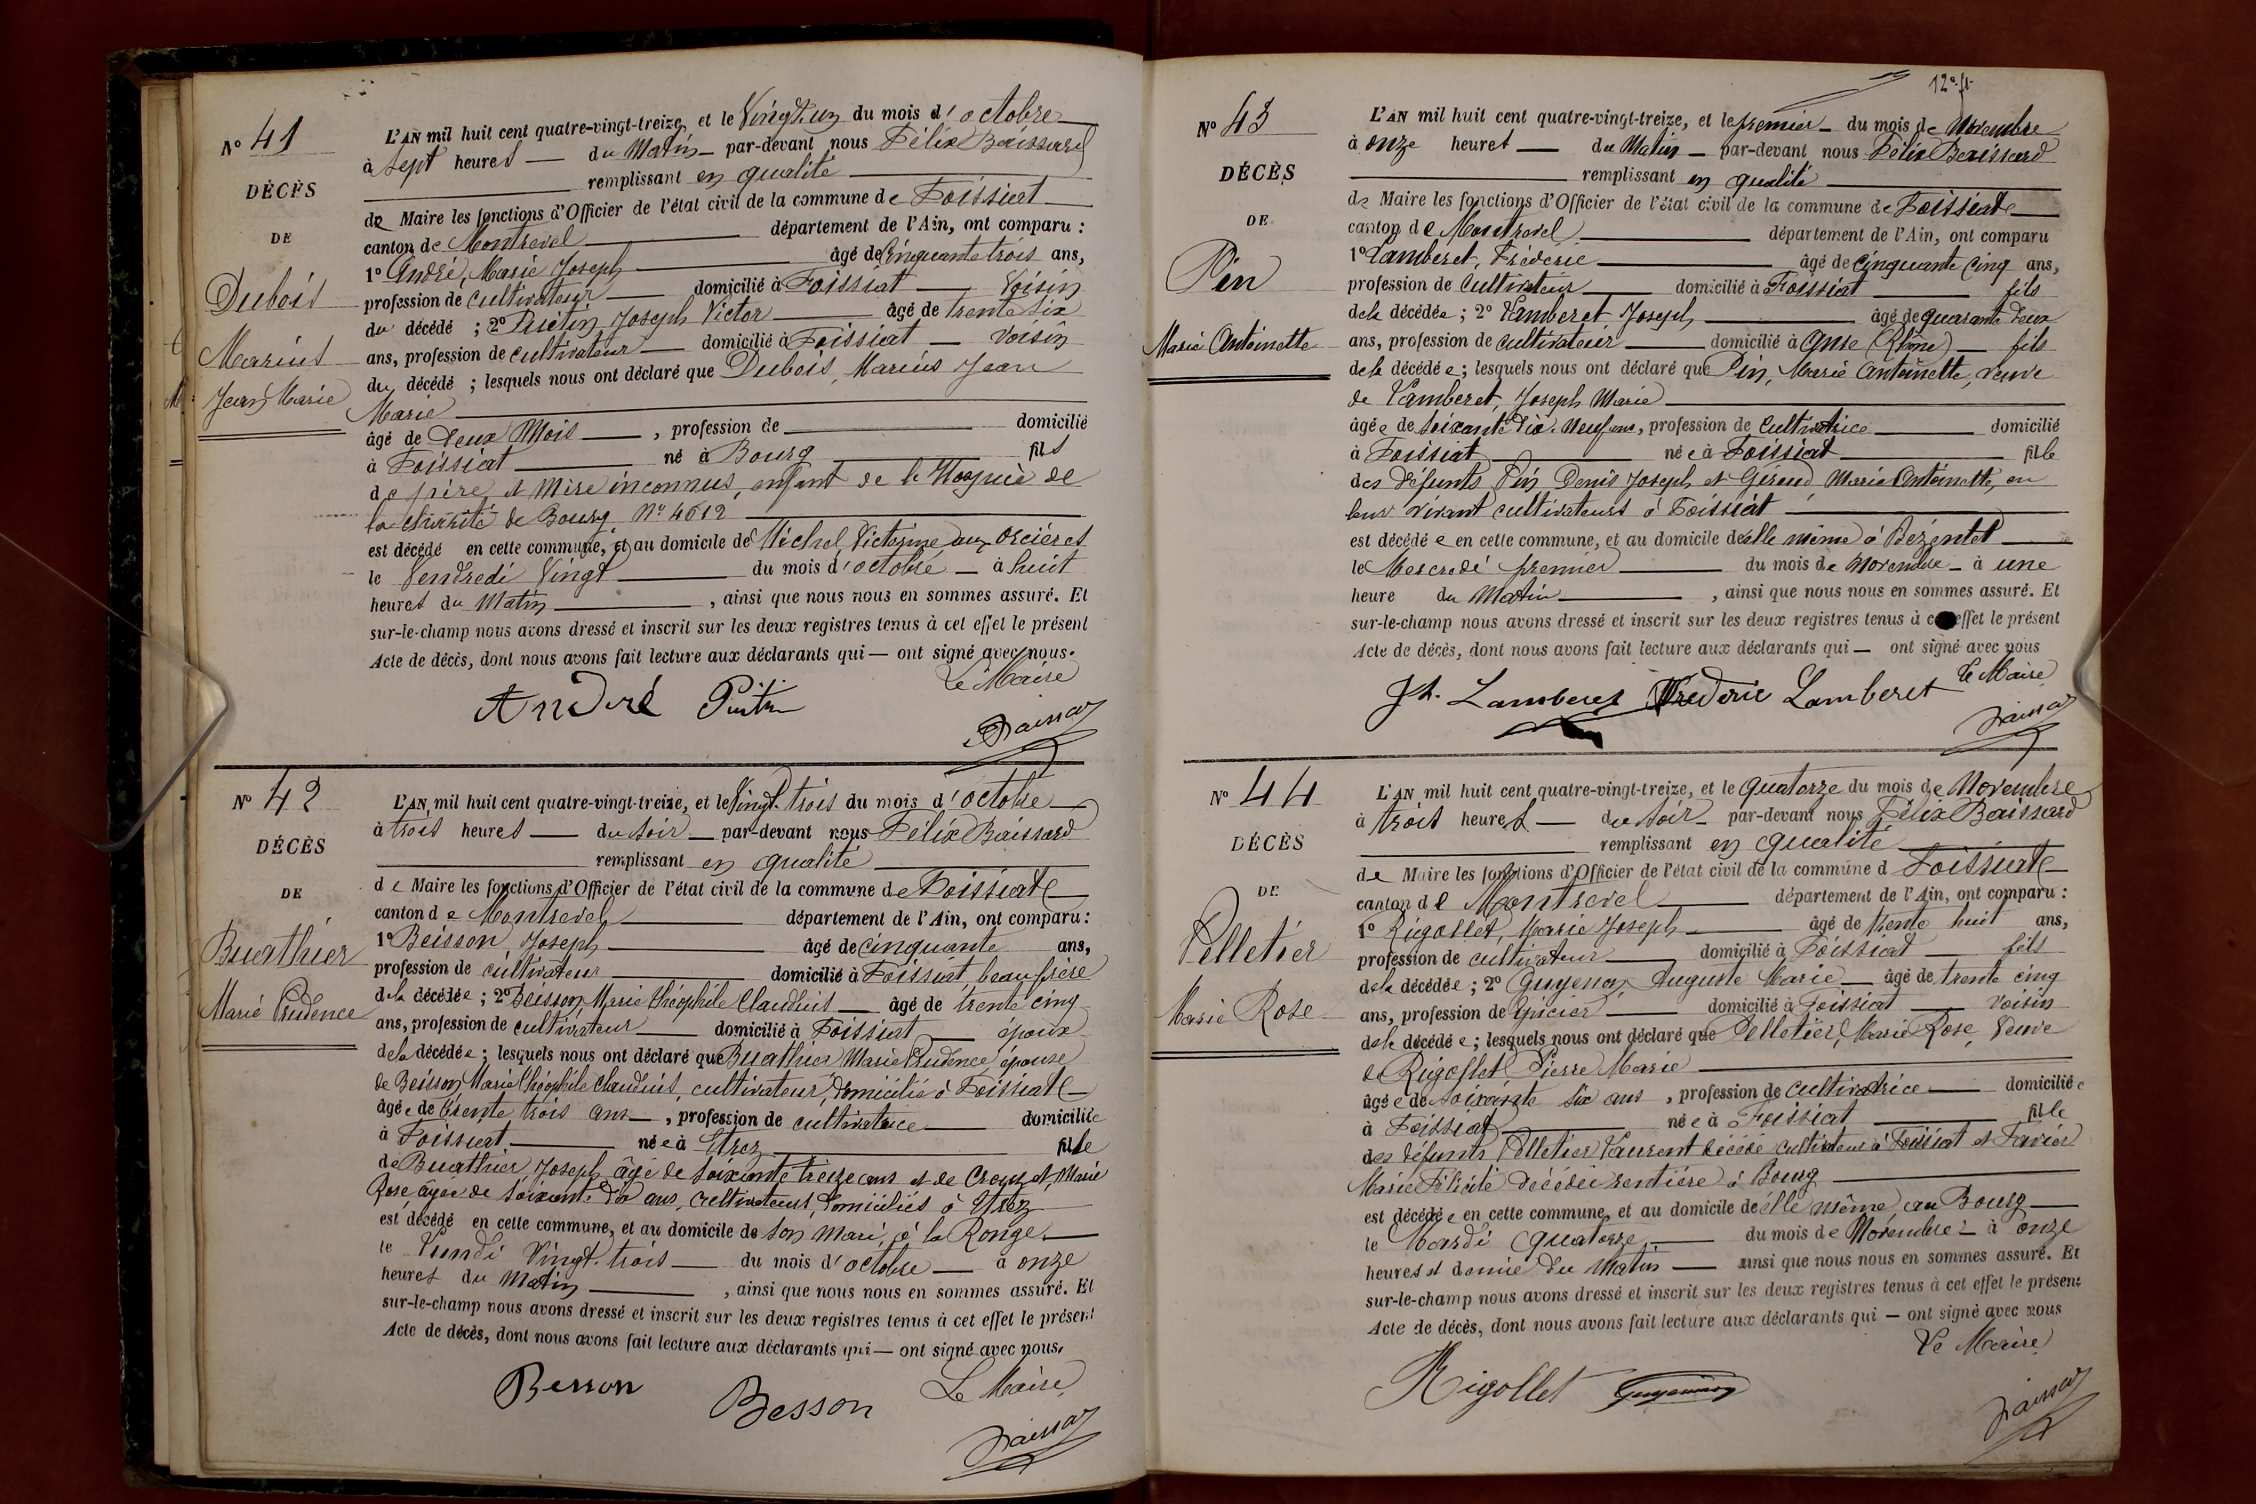 N° 41
DÉCÈS
DE
Dubois
Marius
Jean Marie
L'AN mil huit cent quatre-vingt-treize, et le Vingt un du mois d'octobre
à sept heures du Matin par-devant nous Félix Baissard
remplissant en qualité
de Maire les fonctions d'Officier de l'état civil de la commune de Foissiat
canton de Montrevel département de l'Ain, ont comparu :
1° André, Marie Joseph âgé de Cinquante trois ans,
profession de cultivateur domicilié à Foissiat Voisin
du décédé ; 2° Joseph Victor âgé de trente six
ans, profession de cultivateur domicilié à Foissiat Voisin
du décédé ; lesquels nous ont déclaré que Dubois, Marius Jean
Marie
âgé de Deux Mois , profession de domicilié
à Foissiat né à Bourg fils
de père et Mère inconnus, enfant de l'Hospice de
la charité de Bourg N° 4612
est décédé en cette commune, et au domicile de Michel Victorine aux Orcières
le Vendredi Vingt du mois d'octobre à huit
heures du Matin , ainsi que nous nous en sommes assuré. Et
sur-le-champ nous avons dressé et inscrit sur les deux registres tenus à cet effet le présent
Acte de décès, dont nous avons fait lecture aux déclarants qui — ont signé avec nous.
Le Maire
André
Baissard
N° 42
DÉCÈS
DE
Buathier
Marie Prudence
L'AN mil huit cent quatre-vingt-treize, et le Vingt-trois du mois d'octobre
à trois heures du soir par-devant nous Félix Baissard
remplissant en qualité
de Maire les fonctions d'Officier de l'état civil de la commune de Foissiat
canton de Montrevel département de l'Ain, ont comparu :
1° Beisson Joseph âgé de cinquante ans,
profession de cultivateur domicilié à Foissiat, beau frère
de la décédée ; 2° Beisson, Marie Théophile Claudius âgé de trente cinq
ans, profession de cultivateur domicilié à Foissiat époux
de la décédée ; lesquels nous ont déclaré que Buathier Marie Prudence, épouse
de Beisson Marie Théophile Claudius, cultivateur, domicilié à Foissiat
âgée de trente trois ans , profession de cultivatrice domiciliée
à Foissiat née à Etrez fille
de Buathier Joseph âgé de soixante treize ans et de Marie
Rose âgée de soixante dix ans, cultivateurs, domiciliés à Etrez
est décédé en cette commune, et au domicile de son mari, à la Ronge
le Lundi Vingt-trois du mois d'octobre à onze
heures du Matin , ainsi que nous nous en sommes assuré. Et
sur-le-champ nous avons dressé et inscrit sur les deux registres tenus à cet effet le présent
Acte de décès, dont nous avons fait lecture aux déclarants qui — ont signé avec nous.
Le Maire
Besson Besson
Baissard
N° 43
DÉCÈS
DE
Pin
Marie Antoinette
L'AN mil huit cent quatre-vingt-treize, et le premier du mois de Novembre
à onze heures du Matin par-devant nous Félix Baissard
remplissant en qualité
de Maire les fonctions d'Officier de l'état civil de la commune de Foissiat
canton de Montrevel département de l'Ain, ont comparu
1° Lamberet, Fréderic âgé de Cinquante Cinq ans,
profession de Cultivateur domicilié à Foissiat fils
de la décédée ; 2° Lamberet Joseph âgé de quarante deux
ans, profession de cultivateur domicilié à Anse (Rhône) fils
de la décédée ; lesquels nous ont déclaré que Pin, Marie Antoinette, veuve
de Lamberet, Joseph Marie
âgée de soixante Dix-Neuf ans, profession de Cultivatrice domicilié
à Foissiat née à Foissiat fille
des défunts Pin Denis Joseph et Giroud Marie Antoinette, en
leur vivant cultivateurs à Foissiat
est décédée en cette commune, et au domicile de elle même à Bézentet
le Mercredi premier du mois de Novembre à une
heure du Matin , ainsi que nous nous en sommes assuré. Et
sur-le-champ nous avons dressé et inscrit sur les deux registres tenus à effet le présent
Acte de décès, dont nous avons fait lecture aux déclarants qui — ont signé avec nous
Le Maire
Jh. Lamberet Frederic Lamberet
Baissard
N° 44
DÉCÈS
DE
Pelletier
Marie Rose
L'AN mil huit cent quatre-vingt-treize, et le quatorze du mois de Novembre
à trois heures du soir par-devant nous Félix Baissard
remplissant en qualité
de Maire les fonctions d'Officier de l'état civil de la commune d Foissiat
canton de Montrevel département de l'Ain, ont comparu :
1° Rigollet, Marie Joseph âgé de trente huit ans,
profession de cultivateur domicilié à Foissiat fils
de la décédée ; 2° Guyenon Auguste Marie âgé de trente cinq
ans, profession de Epicier domicilié à Foissiat Voisin
de la décédée ; lesquels nous ont déclaré que Pelletier, Marie Rose, Veuve
de Rigollet Pierre Marie
âgée de soixante six ans , profession de cultivatrice domiciliée
à Foissiat née à Foissiat fille
des défunts Pelletier Laurent décédé cultivateur à Foissiat et Favier
Marie Félicité décédée rentière à Bourg
est décédée en cette commune, et au domicile de elle même au Bourg
le Mardi quatorze du mois de Novembre à onze
heures et demie du Matin ainsi que nous nous en sommes assuré. Et
sur-le-champ nous avons dressé et inscrit sur les deux registres tenus à cet effet le présent
Acte de décès, dont nous avons fait lecture aux déclarants qui — ont signé avec nous
Le Maire
Rigollet
Baissard